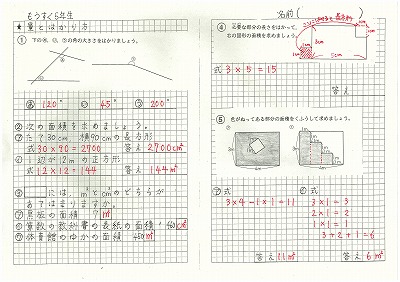 もうすぐ5年生
★量とはかり方
① 下の㋐、㋑、㋒の角の大きさをはかりましょう。
㋐ 120° ㋑ 45° ㋒ 200°
② 次の面積を求めましょう。
㋐ たて30cm、横90cmの長方形
式 30×90=2700 答え 2700cm²
㋑ 1辺が12mの正方形
式 12×12=144 答え 144m²
③ □には、m²とcm²のどちらが
あてはまりますか。
㋐ 黒板の面積 7m²
㋑ 算数の教科書の表紙の面積 cm²
㋒ 体育館のゆかの面積 450m²
名前( )
④ 必要な部分の長さをはかって、
右の図形の面積を求めましょう。
3cm
5cm
式 3×5=15
答え
⑤ 色がぬってある部分の面積をくふうして求めましょう。
㋐ ㋑
㋐ 式
3×4-1×1=11
答え 11m²
㋑ 式
3×1=3
2×1=2
1×1=1
3+2+1=6
答え 6m²